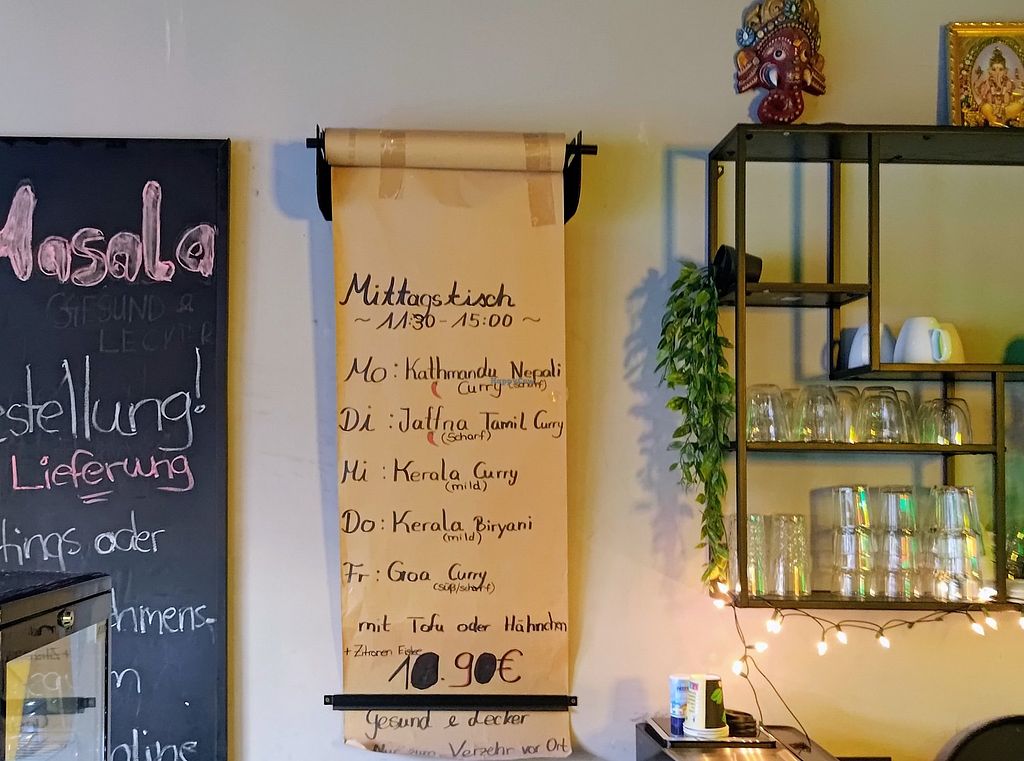 Masala
GESUND &
LECKER
estellung!
Lieferung
oder
hmens-
Mittagstisch
~ 11:30 - 15:00 ~
Mo : Kathmandu Nepali
Curry (scharf)
Di : Jaffna Tamil Curry
(scharf)
Mi : Kerala Curry
(mild)
Do : Kerala Biryani
(mild)
Fr : Goa Curry
(süß/scharf)
mit Tofu oder Hähnchen
+ Zitronen
10.90€
Gesund & Lecker
Nur zum Verzehr vor Ort